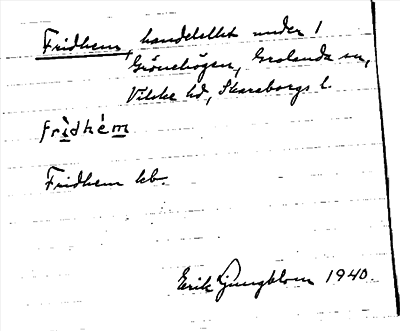 Fridhem, handelslht under 1
Grönehögen, Grolanda sn,
Vilske hd, Skaraborgs l.
frìdhém
Fridhem kb.
Erik Ljungblom 1940.